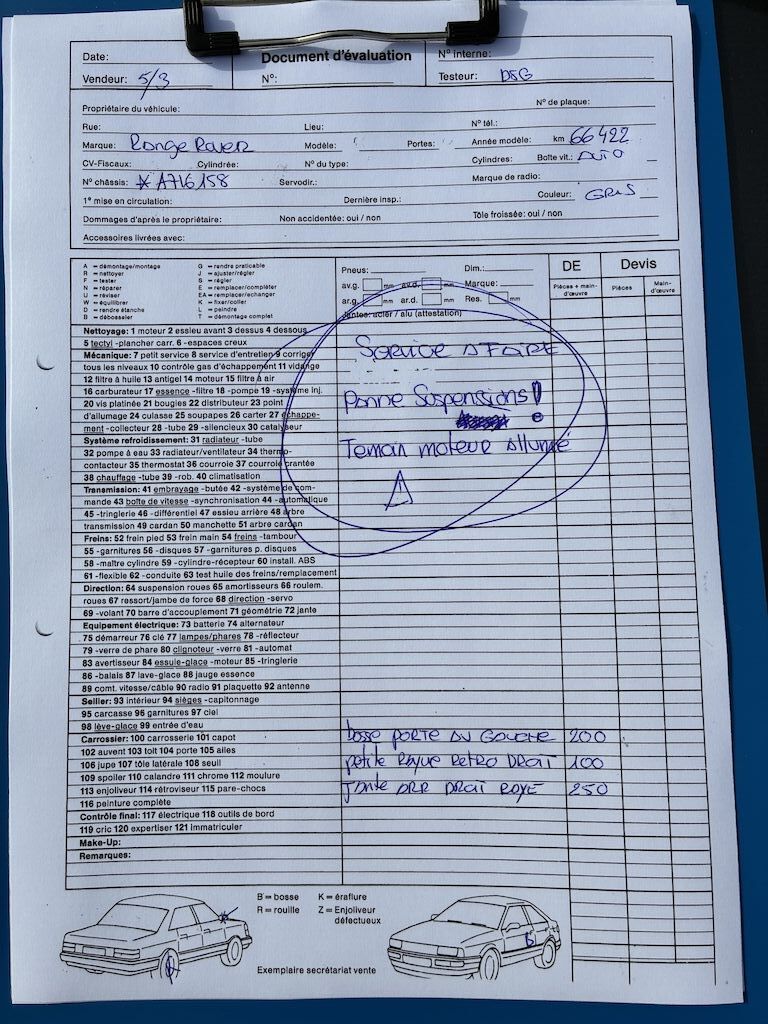 Date:
Document d'évaluation
N° interne:
Vendeur: 5/3
N°:
Testeur: DSG
Propriétaire du véhicule:
N° de plaque:
Rue:
Lieu:
N° tél.:
Marque: Range Rover
Modèle:
Portes:
Année modèle:
km 66422
CV-Fiscaux:
Cylindrée:
N° du type:
Cylindres:
Boîte vit.: AUTO
N° châssis: * A716158
Servodir.:
Marque de radio:
1° mise en circulation:
Dernière insp.:
Couleur: GRIS
Dommages d'après le propriétaire:
Non accidentée: oui / non
Tôle froissée: oui / non
Accessoires livrées avec:
A = démontage/montage
R = nettoyer
F = tester
N = réparer
U = réviser
W = équilibrer
D = rendre étanche
B = débosseler
G = rendre praticable
J = ajuster/régler
S = régler
E = remplacer/compléter
EA = remplacer/échanger
K = fixer/coller
L = peindre
T = démontage complet
Pneus:
Dim.:
av.g. mm av.d. mm Marque:
ar.g. mm ar.d. mm Res. mm
Jantes: acier / alu (attestation)
DE
Pièces + main-d'œuvre
Devis
Pièces
Main-d'œuvre
Nettoyage: 1 moteur 2 essieu avant 3 dessus 4 dessous
5 tectyl -plancher carr. 6 -espaces creux
Mécanique: 7 petit service 8 service d'entretien 9 corriger
tous les niveaux 10 contrôle gaz d'échappement 11 vidange
12 filtre à huile 13 antigel 14 moteur 15 filtre à air
16 carburateur 17 essence -filtre 18 -pompe 19 -système inj.
20 vis platinée 21 bougies 22 distributeur 23 point
d'allumage 24 culasse 25 soupapes 26 carter 27 échappe-
ment -collecteur 28 -tube 29 -silencieux 30 catalyseur
Système refroidissement: 31 radiateur -tube
32 pompe à eau 33 radiateur/ventilateur 34 thermo-
contacteur 35 thermostat 36 courroie 37 courroie crantée
38 chauffage -tube 39 -rob. 40 climatisation
Transmission: 41 embrayage -butée 42 -système de com-
mande 43 boîte de vitesse -synchronisation 44 -automatique
45 -tringlerie 46 -différentiel 47 essieu arrière 48 arbre
transmission 49 cardan 50 manchette 51 arbre cardan
Freins: 52 frein pied 53 frein main 54 freins -tambour
55 -garnitures 56 -disques 57 -garnitures p. disques
58 -maître cylindre 59 -cylindre-récepteur 60 install. ABS
61 -flexible 62 -conduite 63 test huile des freins/remplacement
Direction: 64 suspension roues 65 amortisseurs 66 roulem.
roues 67 ressort/jambe de force 68 direction -servo
69 -volant 70 barre d'accouplement 71 géométrie 72 jante
Equipement électrique: 73 batterie 74 alternateur
75 démarreur 76 clé 77 lampes/phares 78 -réflecteur
79 -verre de phare 80 clignoteur -verre 81 -automat
83 avertisseur 84 essuie-glace -moteur 85 -tringlerie
86 -balais 87 lave-glace 88 jauge essence
89 comt. vitesse/câble 90 radio 91 plaquette 92 antenne
Sellier: 93 intérieur 94 sièges -capitonnage
95 carcasse 96 garnitures 97 ciel
98 lève-glace 99 entrée d'eau
Carrossier: 100 carrosserie 101 capot
102 auvent 103 toit 104 porte 105 ailes
106 jupe 107 tôle latérale 108 seuil
109 spoiler 110 calandre 111 chrome 112 moulure
113 enjoliveur 114 rétroviseur 115 pare-chocs
116 peinture complète
Contrôle final: 117 électrique 118 outils de bord
119 cric 120 expertiser 121 immatriculer
Make-Up:
Remarques:
Service A FAIRE
Panne Suspensions!
Temoin moteur Allumé
bosse PORTE AV GAUCHE 200
petite Rayue Retro DROIT 100
Jante ARR DROIT RAYE 250
B = bosse K = éraflure
R = rouille Z = Enjoliveur
défectueux
Exemplaire secrétariat vente